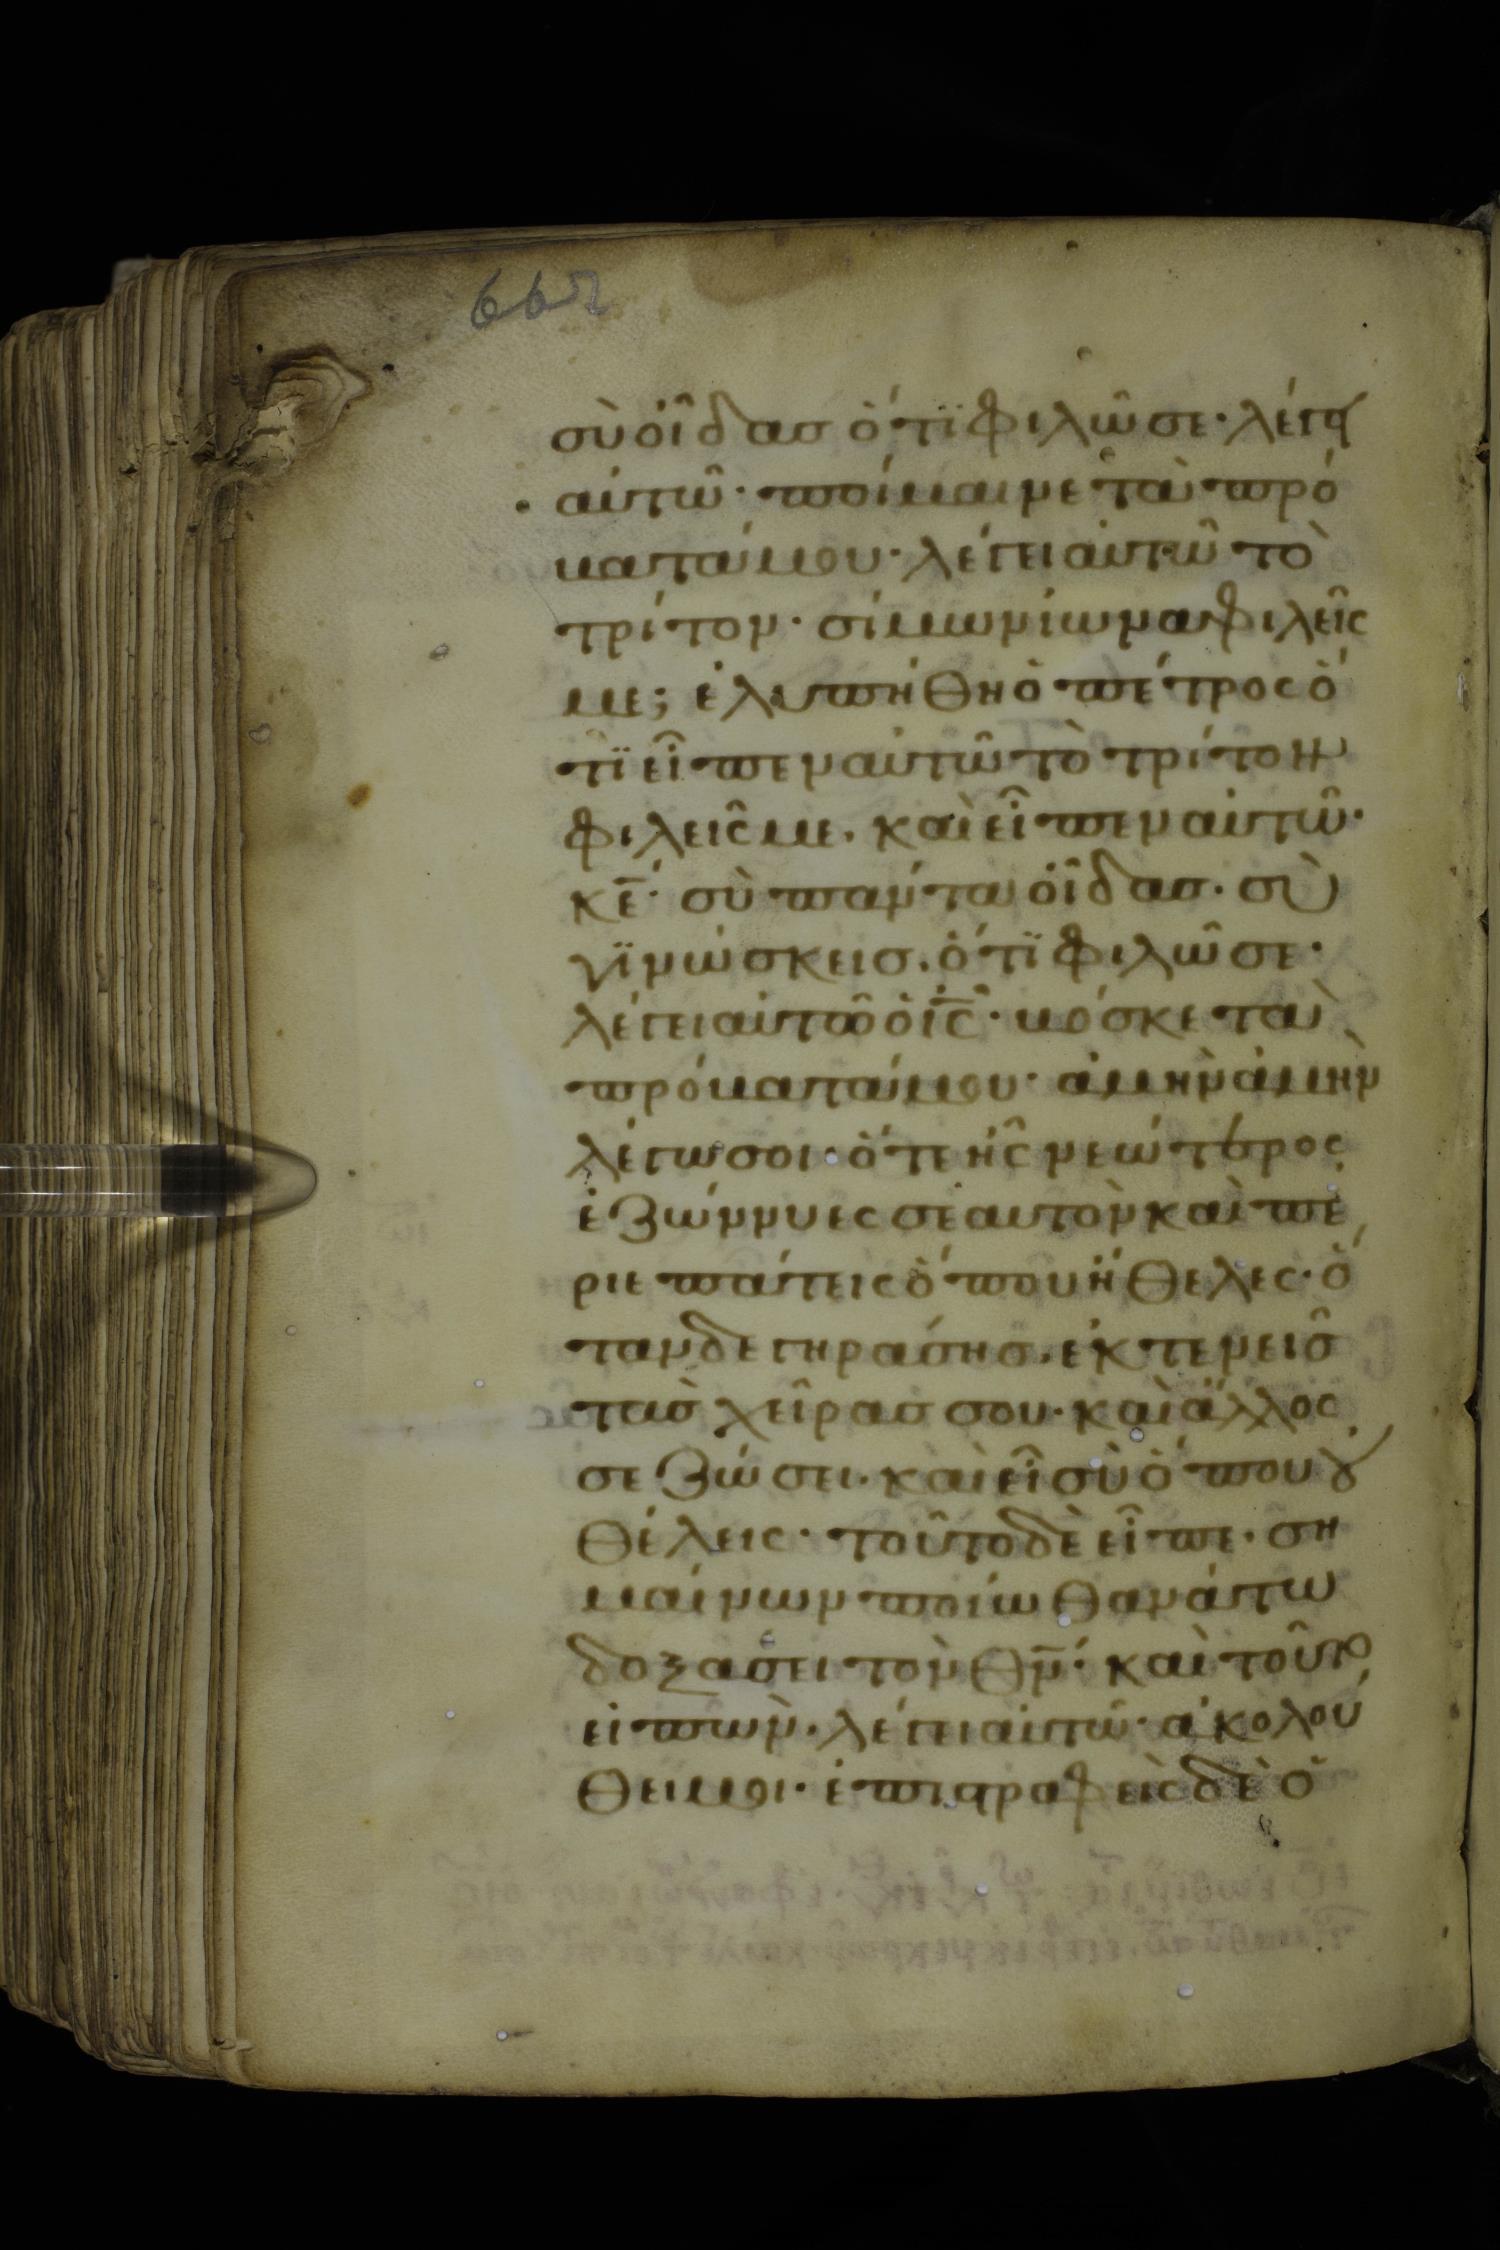 667
σὺ οἶδας ὅτϊ φιλῶ σε· λέγει
αὐτῶ· ποίμαινε τὰ πρό
βατά μου· λέγει αὐτῶ τὸ
τρίτον· σίμων ἰωνᾶ φιλεῖς
με; ἐλυπήθη ὁ πέτρος ὅ
τϊ εἶπεν αὐτῶ τὸ τρίτον
φιλεῖς με. καὶ εἶπεν αὐτῶ·
κ̅ε̅· σὺ πάντα οἶδας. σὺ
γϊνώσκεις. ὅτϊ φιλῶ σε·
λέγει αὐτῶ ὁ ι̅ς̅· βόσκε τὰ
πρόβατά μου· ἀμὴν ἀμὴν
λέγω σοι· ὅτε ἦς νεώτερος
ἐζώννυες σεαυτὸν καὶ πε
ριεπάτεις ὅπου ἤθελες· ὅ
ταν δε γηράσης. ἐκτενεῖς
τὰς χεῖρας σου· καὶ ἄλλος
σε ζώσει. καὶ εἶ σὺ ὅπου οὐ
θέλεις· τοῦτο δὲ εἶπε. ση
μαίνων ποίω θανάτω
δοξάσει τὸν θ̅ν̅· καὶ τοῦτο
εἰπὼν. λέγει αὐτῶ· ἀκολού
θει μοι· ἐπιστραφεὶς δὲ ὁ